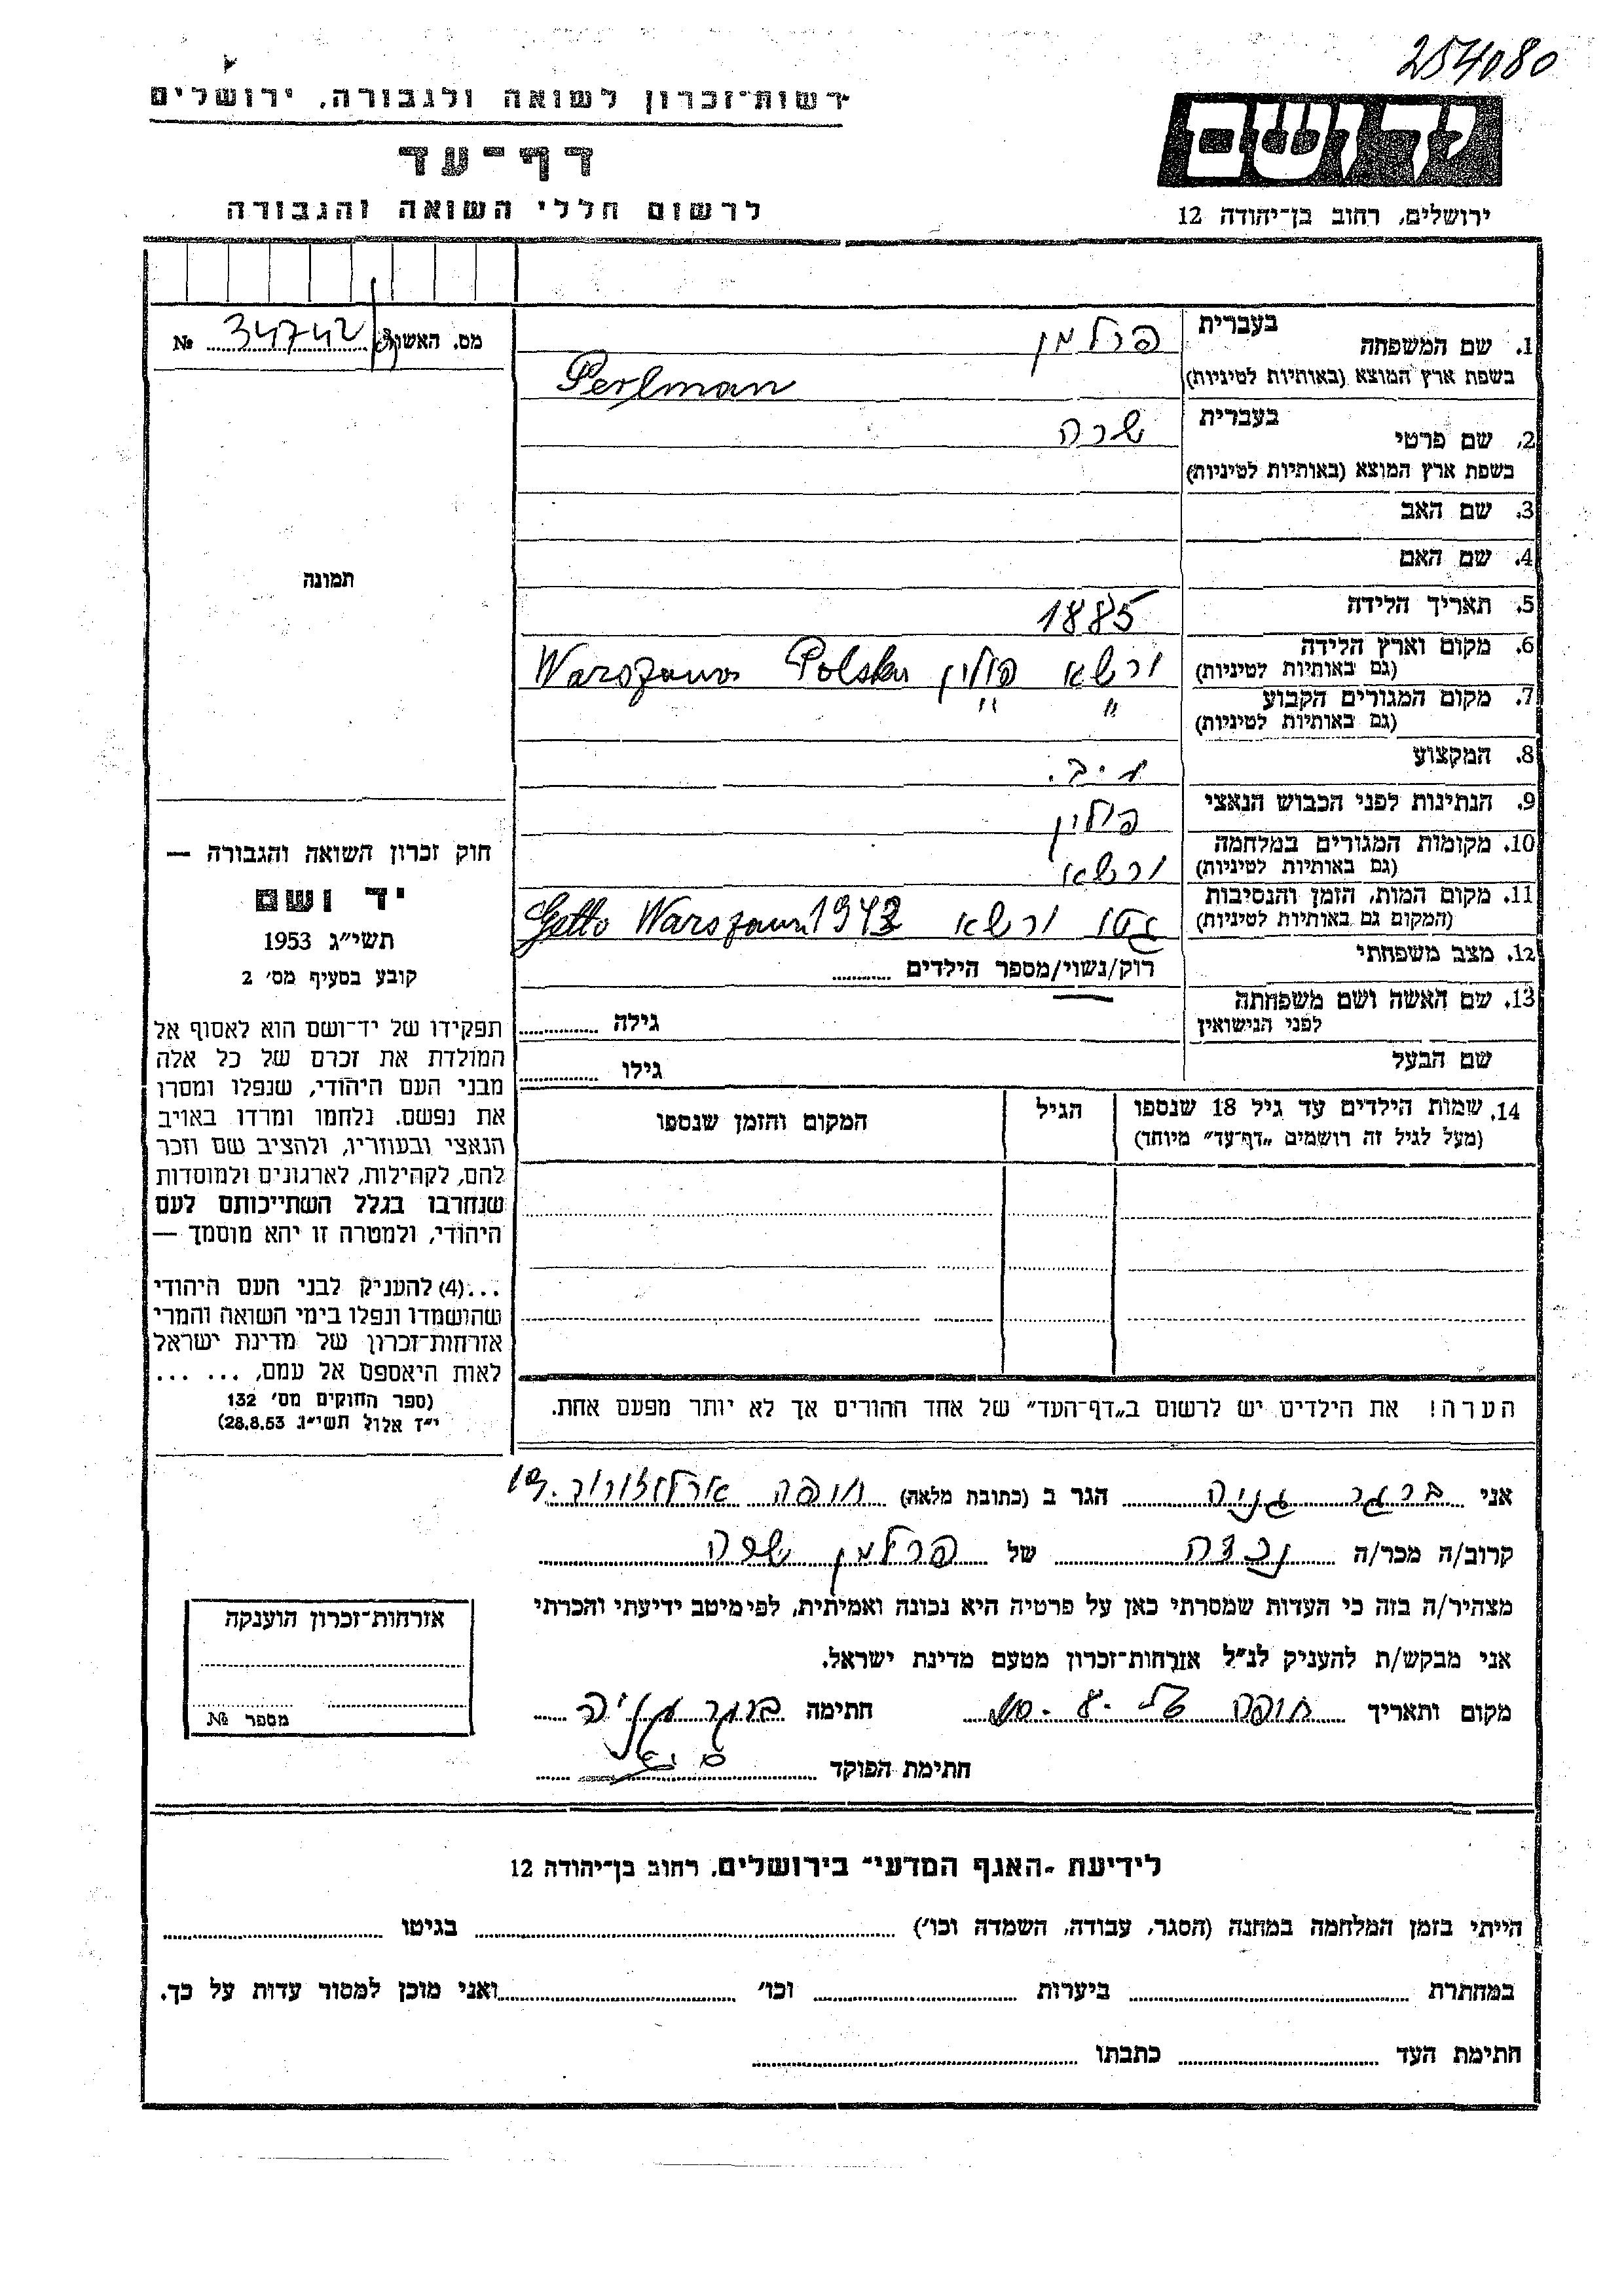 254080
רשות־זכרון לשואה ולגבורה, ירושלים
יד ושם
דף־עד
לרשום חללי השואה והגבורה
ירושלים, רחוב בן־יהודה 12
מס. האשור 34742 №
1. שם המשפחה בעברית פרלמן
בשפת ארץ המוצא (באותיות לטיניות) Perlman
2. שם פרטי בעברית שרה
בשפת ארץ המוצא (באותיות לטיניות)
3. שם האב
4. שם האם
5. תאריך הלידה 1885
6. מקום וארץ הלידה ורשא פולין Warszawa Polska
(גם באותיות לטיניות)
7. מקום המגורים הקבוע " "
(גם באותיות לטיניות)
8. המקצוע
9. הנתינות לפני הכבוש הנאצי פולין
10. מקומות המגורים במלחמה ורשא
(גם באותיות לטיניות)
11. מקום המות, הזמן והנסיבות גטו ורשא Getto Warszawa
(המקום גם באותיות לטיניות)
12. מצב משפחתי רוק/נשוי/מספר הילדים
13. שם האשה ושם משפחתה
לפני הנישואין
גילה
שם הבעל גילו
14. שמות הילדים עד גיל 18 שנספו הגיל המקום והזמן שנספו
(מעל לגיל זה רושמים „דף־עד" מיוחד)
הערה! את הילדים יש לרשום ב„דף־העד" של אחד ההורים אך לא יותר מפעם אחת.
תמונה
חוק זכרון השואה והגבורה —
יד ושם
תשי"ג 1953
קובע בסעיף מס׳ 2
תפקידו של יד־ושם הוא לאסוף אל
המולדת את זכרם של כל אלה
מבני העם היהודי, שנפלו ומסרו
את נפשם. נלחמו ומרדו באויב
הנאצי ובעוזריו, ולהציב שם וזכר
להם, לקהילות, לארגונים ולמוסדות
שנחרבו בגלל השתייכותם לעם
היהודי, ולמטרה זו יהא מוסמך —
...(4) להעניק לבני העם היהודי
שהושמדו ונפלו בימי השואה והמרי
אזרחות־זכרון של מדינת ישראל
לאות היאספם אל עמם, ... ...
(ספר החוקים מס׳ 132
י"ז אלול תשי"ג 28.8.53)
אני ברגר גניה הגר ב (כתובת מלאה) חיפה ארלוזורוב
קרוב/ה מכר/ה נכדה של פרלמן שרה
מצהיר/ה בזה כי העדות שמסרתי כאן על פרטיה היא נכונה ואמיתית, לפי מיטב ידיעתי והכרתי
אני מבקש/ת להעניק לנ"ל אזרחות־זכרון מטעם מדינת ישראל.
מקום ותאריך חיפה חתימה ברגר גניה
חתימת הפוקד
אזרחות־זכרון הוענקה
מספר №
לידיעת „האגף המדעי" בירושלים, רחוב בן־יהודה 12
הייתי בזמן המלחמה במחנה (הסגר, עבודה, השמדה וכו׳) בגיטו
במחתרת ביערות וכו׳ ואני מוכן למסור עדות על כך.
חתימת העד כתבתו